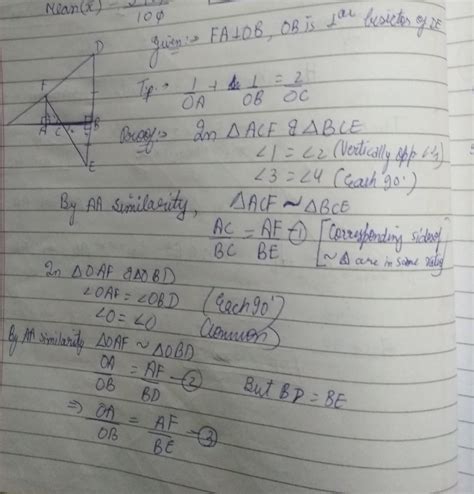 Mean(x̄) =
100
Given:- FA⊥OB, OB is ⊥ar bisector of DE
D
F
T.p.- 1/OA + 1/OB = 2/OC
A C B
E
Proof:- In ΔACF & ΔBCE
∠1 = ∠2 (Vertically opp ∠s)
∠3 = ∠4 (Each 90°)
By AA similarity, ΔACF ~ ΔBCE
AC/BC = AF/BE —① [Corresponding sides of ~ Δ are in same ratio]
In ΔOAF & ΔOBD
∠OAF = ∠OBD (Each 90°)
∠O = ∠O (Common)
By AA similarity ΔOAF ~ ΔOBD
OA/OB = AF/BD —② But BD = BE
⇒ OA/OB = AF/BE —③